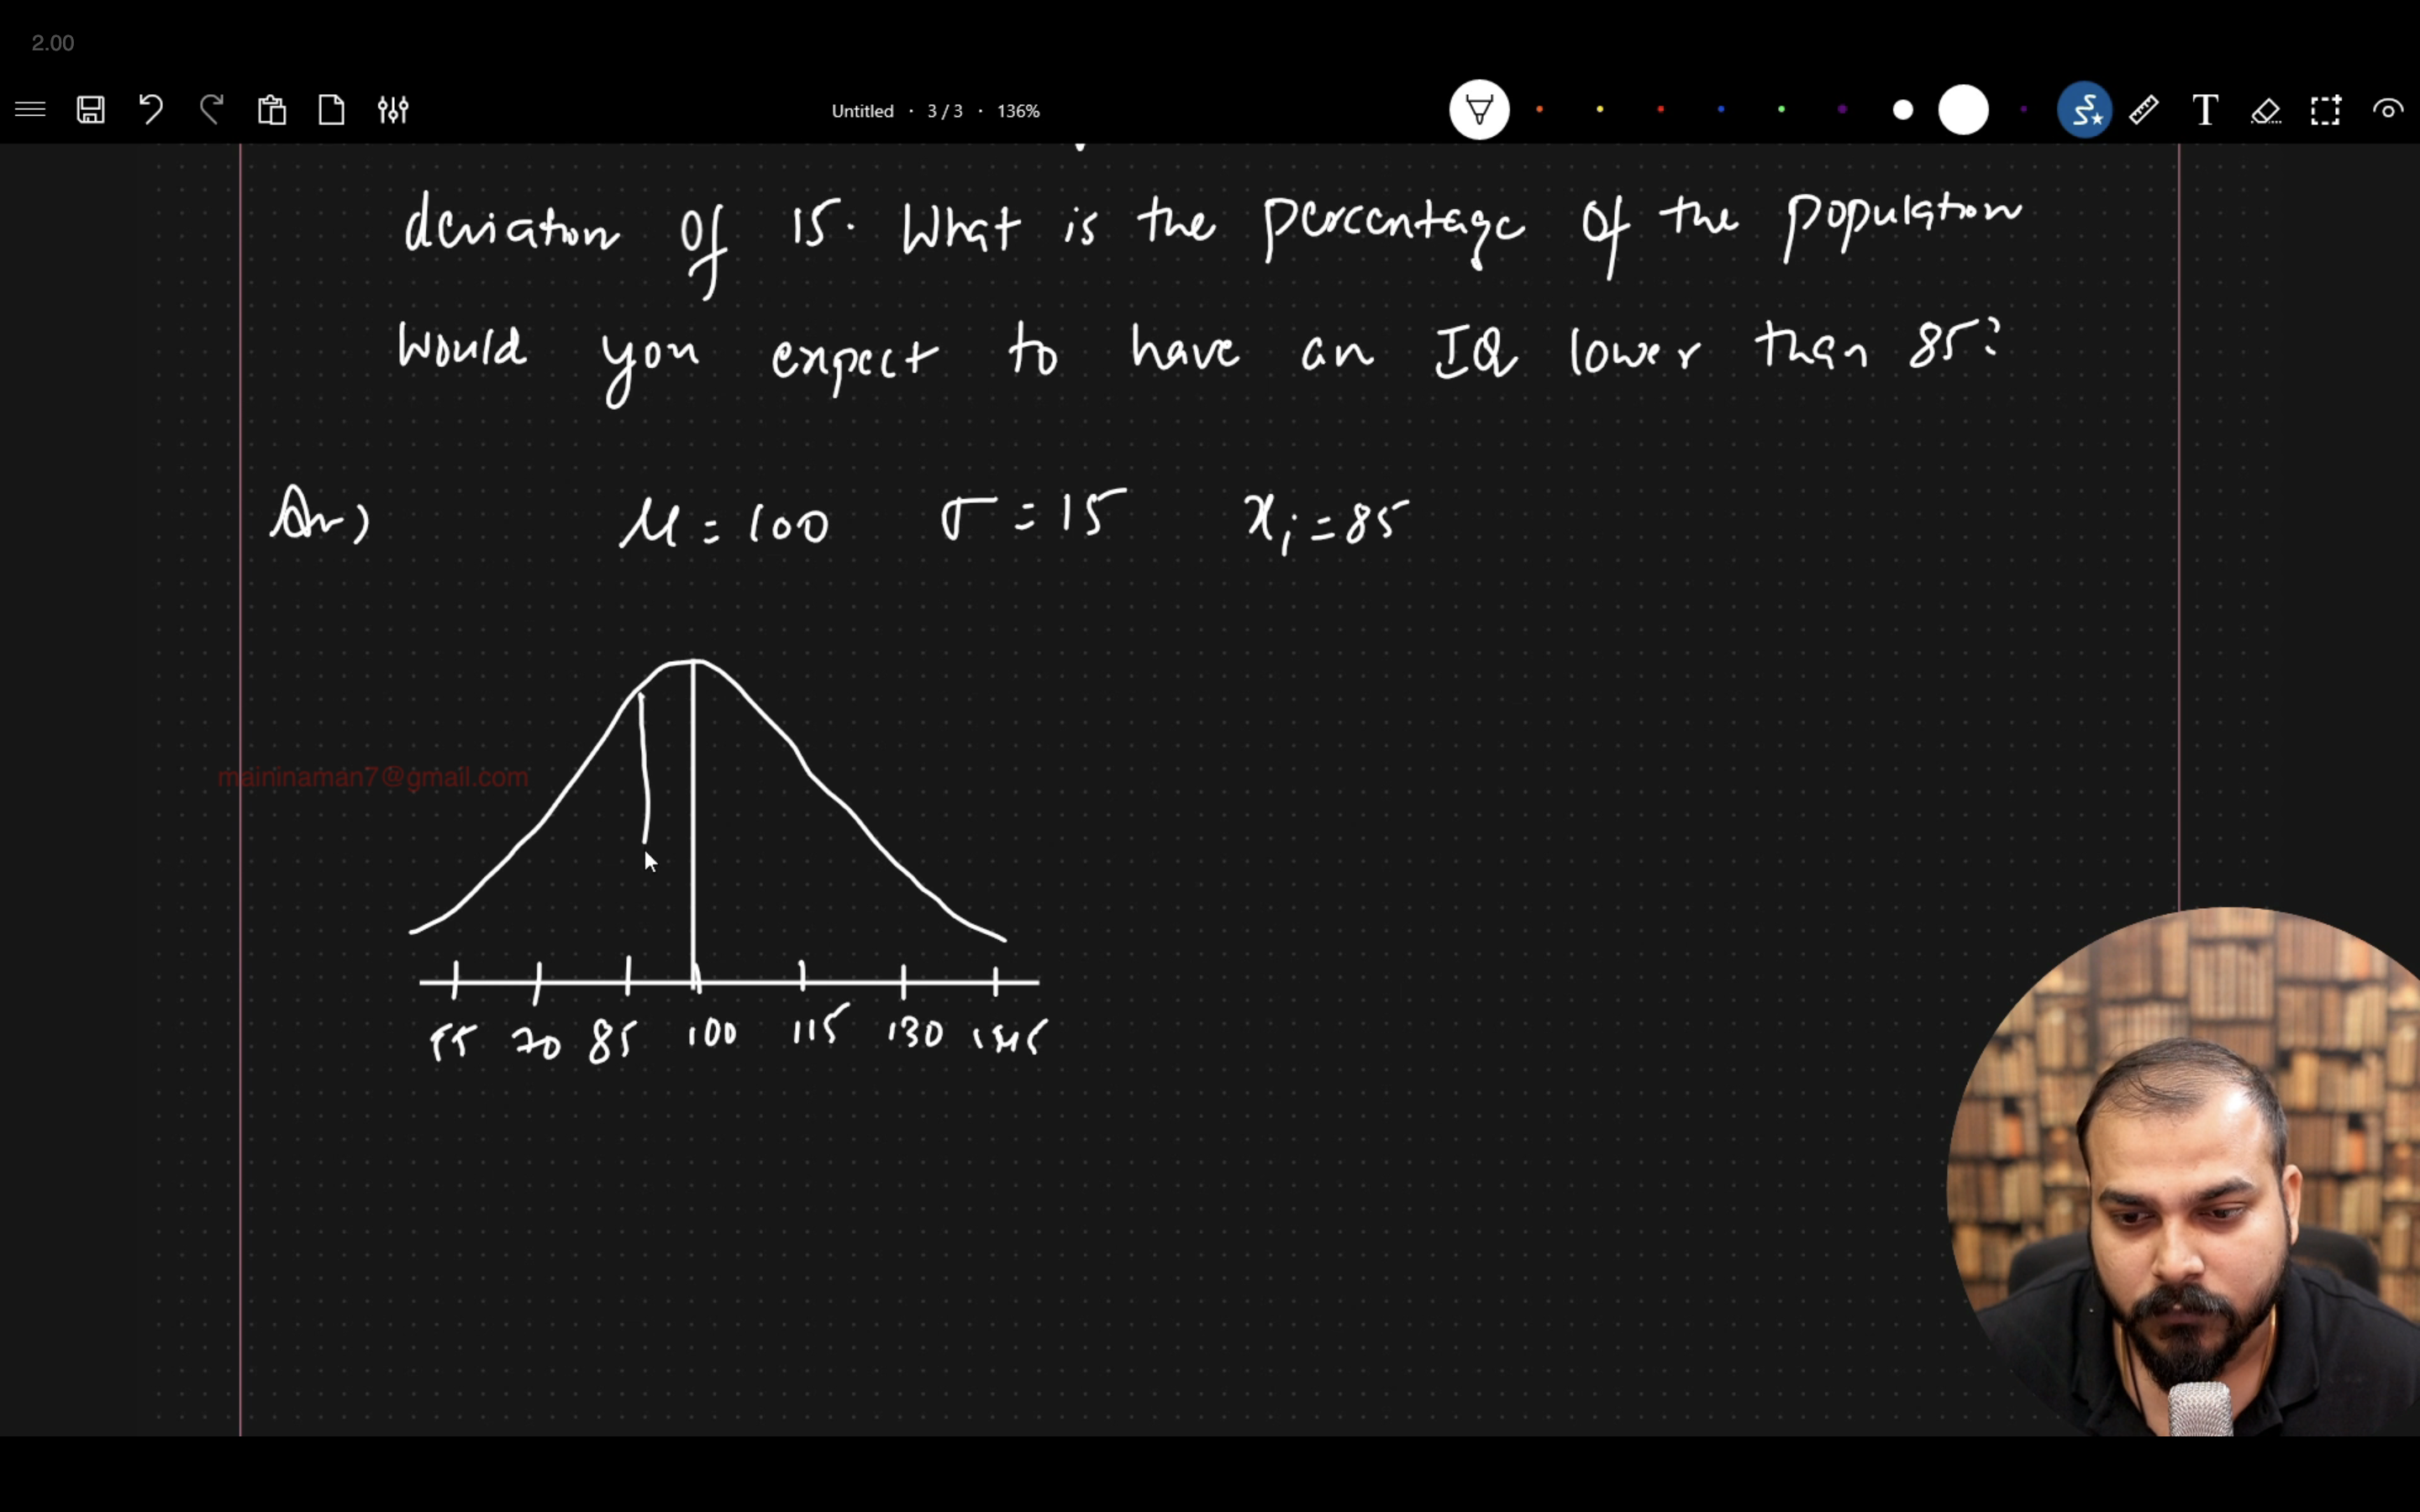 2.00
Untitled · 3 / 3 · 136%
T
deviation of 15. What is the percentage of the population
would you expect to have an IQ lower than 85?
Ans) μ = 100 σ = 15 xi = 85
maininaman7@gmail.com
55 70 85 100 115 130 145